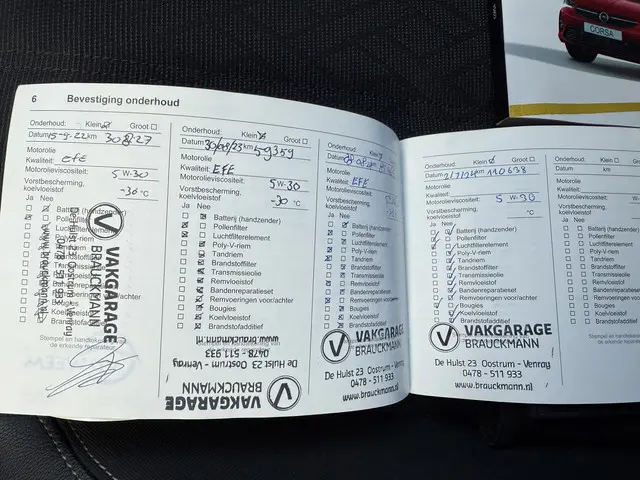 CORSA
6 Bevestiging onderhoud
Onderhoud: Klein Groot
Datum 15-9-22 km
Motorolie
Kwaliteit: EFE
Motorolieviscositeit: 5W-30
Vorstbescherming,
koelvloeistof -36 °C
Ja Nee
Batterij (handzender)
Pollenfilter
VAKGARAGE
BRAUCKMANN
De Hulst 23 Oostrum - Venray
0478 - 511 933
www.brauckmann.nl
Stempel en handtekening van
de erkende reparateur
Onderhoud: Klein Groot
Datum 30/08/23 km 59359
Motorolie
Kwaliteit: EFE
Motorolieviscositeit: 5W-30
Vorstbescherming,
koelvloeistof -30 °C
Ja Nee
Batterij (handzender)
Pollenfilter
Luchtfilterelement
Poly-V-riem
Tandriem
Brandstoffilter
Transmissieolie
Remvloeistof
Bandenreparatieset
Remvoeringen voor/achter
Bougies
Koelvloeistof
Brandstofadditief
VAKGARAGE
BRAUCKMANN
De Hulst 23 Oostrum - Venray
0478 - 511 933
www.brauckmann.nl
Onderhoud: Klein Groot
Motorolie
Kwaliteit: EFE
Motorolieviscositeit: 5W-30
Vorstbescherming,
koelvloeistof
Ja Nee
Batterij (handzender)
Pollenfilter
Luchtfilterelement
Poly-V-riem
Tandriem
Brandstoffilter
Transmissieolie
Remvloeistof
Bandenreparatieset
Remvoeringen voor/achter
Bougies
Koelvloeistof
Brandstofadditief
VAKGARAGE
BRAUCKMANN
De Hulst 23 Oostrum - Venray
0478 - 511 933
www.brauckmann.nl
Onderhoud: Klein Groot
Datum 2/7/24 km 120638
Motorolie
Kwaliteit:
Motorolieviscositeit: 5W-30
Vorstbescherming,
koelvloeistof °C
Ja Nee
Batterij (handzender)
Pollenfilter
Luchtfilterelement
Poly-V-riem
Tandriem
Brandstoffilter
Transmissieolie
Remvloeistof
Bandenreparatieset
Remvoeringen voor/achter
Bougies
Koelvloeistof
Brandstofadditief
VAKGARAGE
BRAUCKMANN
De Hulst 23 Oostrum - Venray
0478 - 511 933
www.brauckmann.nl
Onderhoud: Klein
Datum km
Motorolie
Kwaliteit:
Motorolieviscositeit: W-
Vorstbescherming,
koelvloeistof
Ja Nee
Batterij (handzender)
Pollenfilter
Luchtfilterelement
Poly-V-riem
Tandriem
Brandstoffilter
Transmissieolie
Remvloeistof
Bandenreparatieset
Remvoeringen
Bougies
Koelvloeistof
Brandstofadditief
Stempel en
de erkende